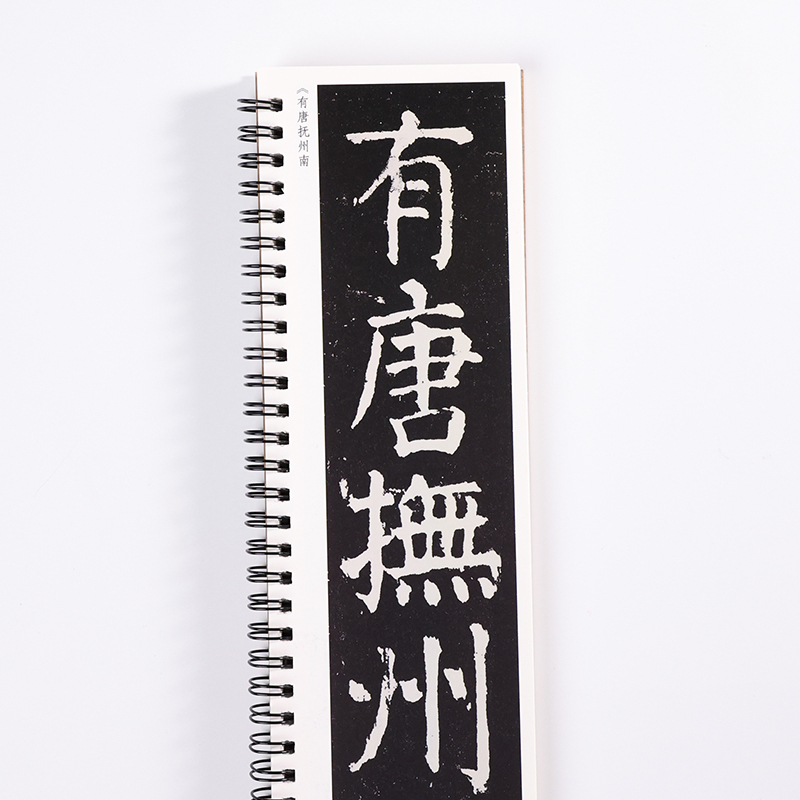 有唐撫州
《有唐抚州南